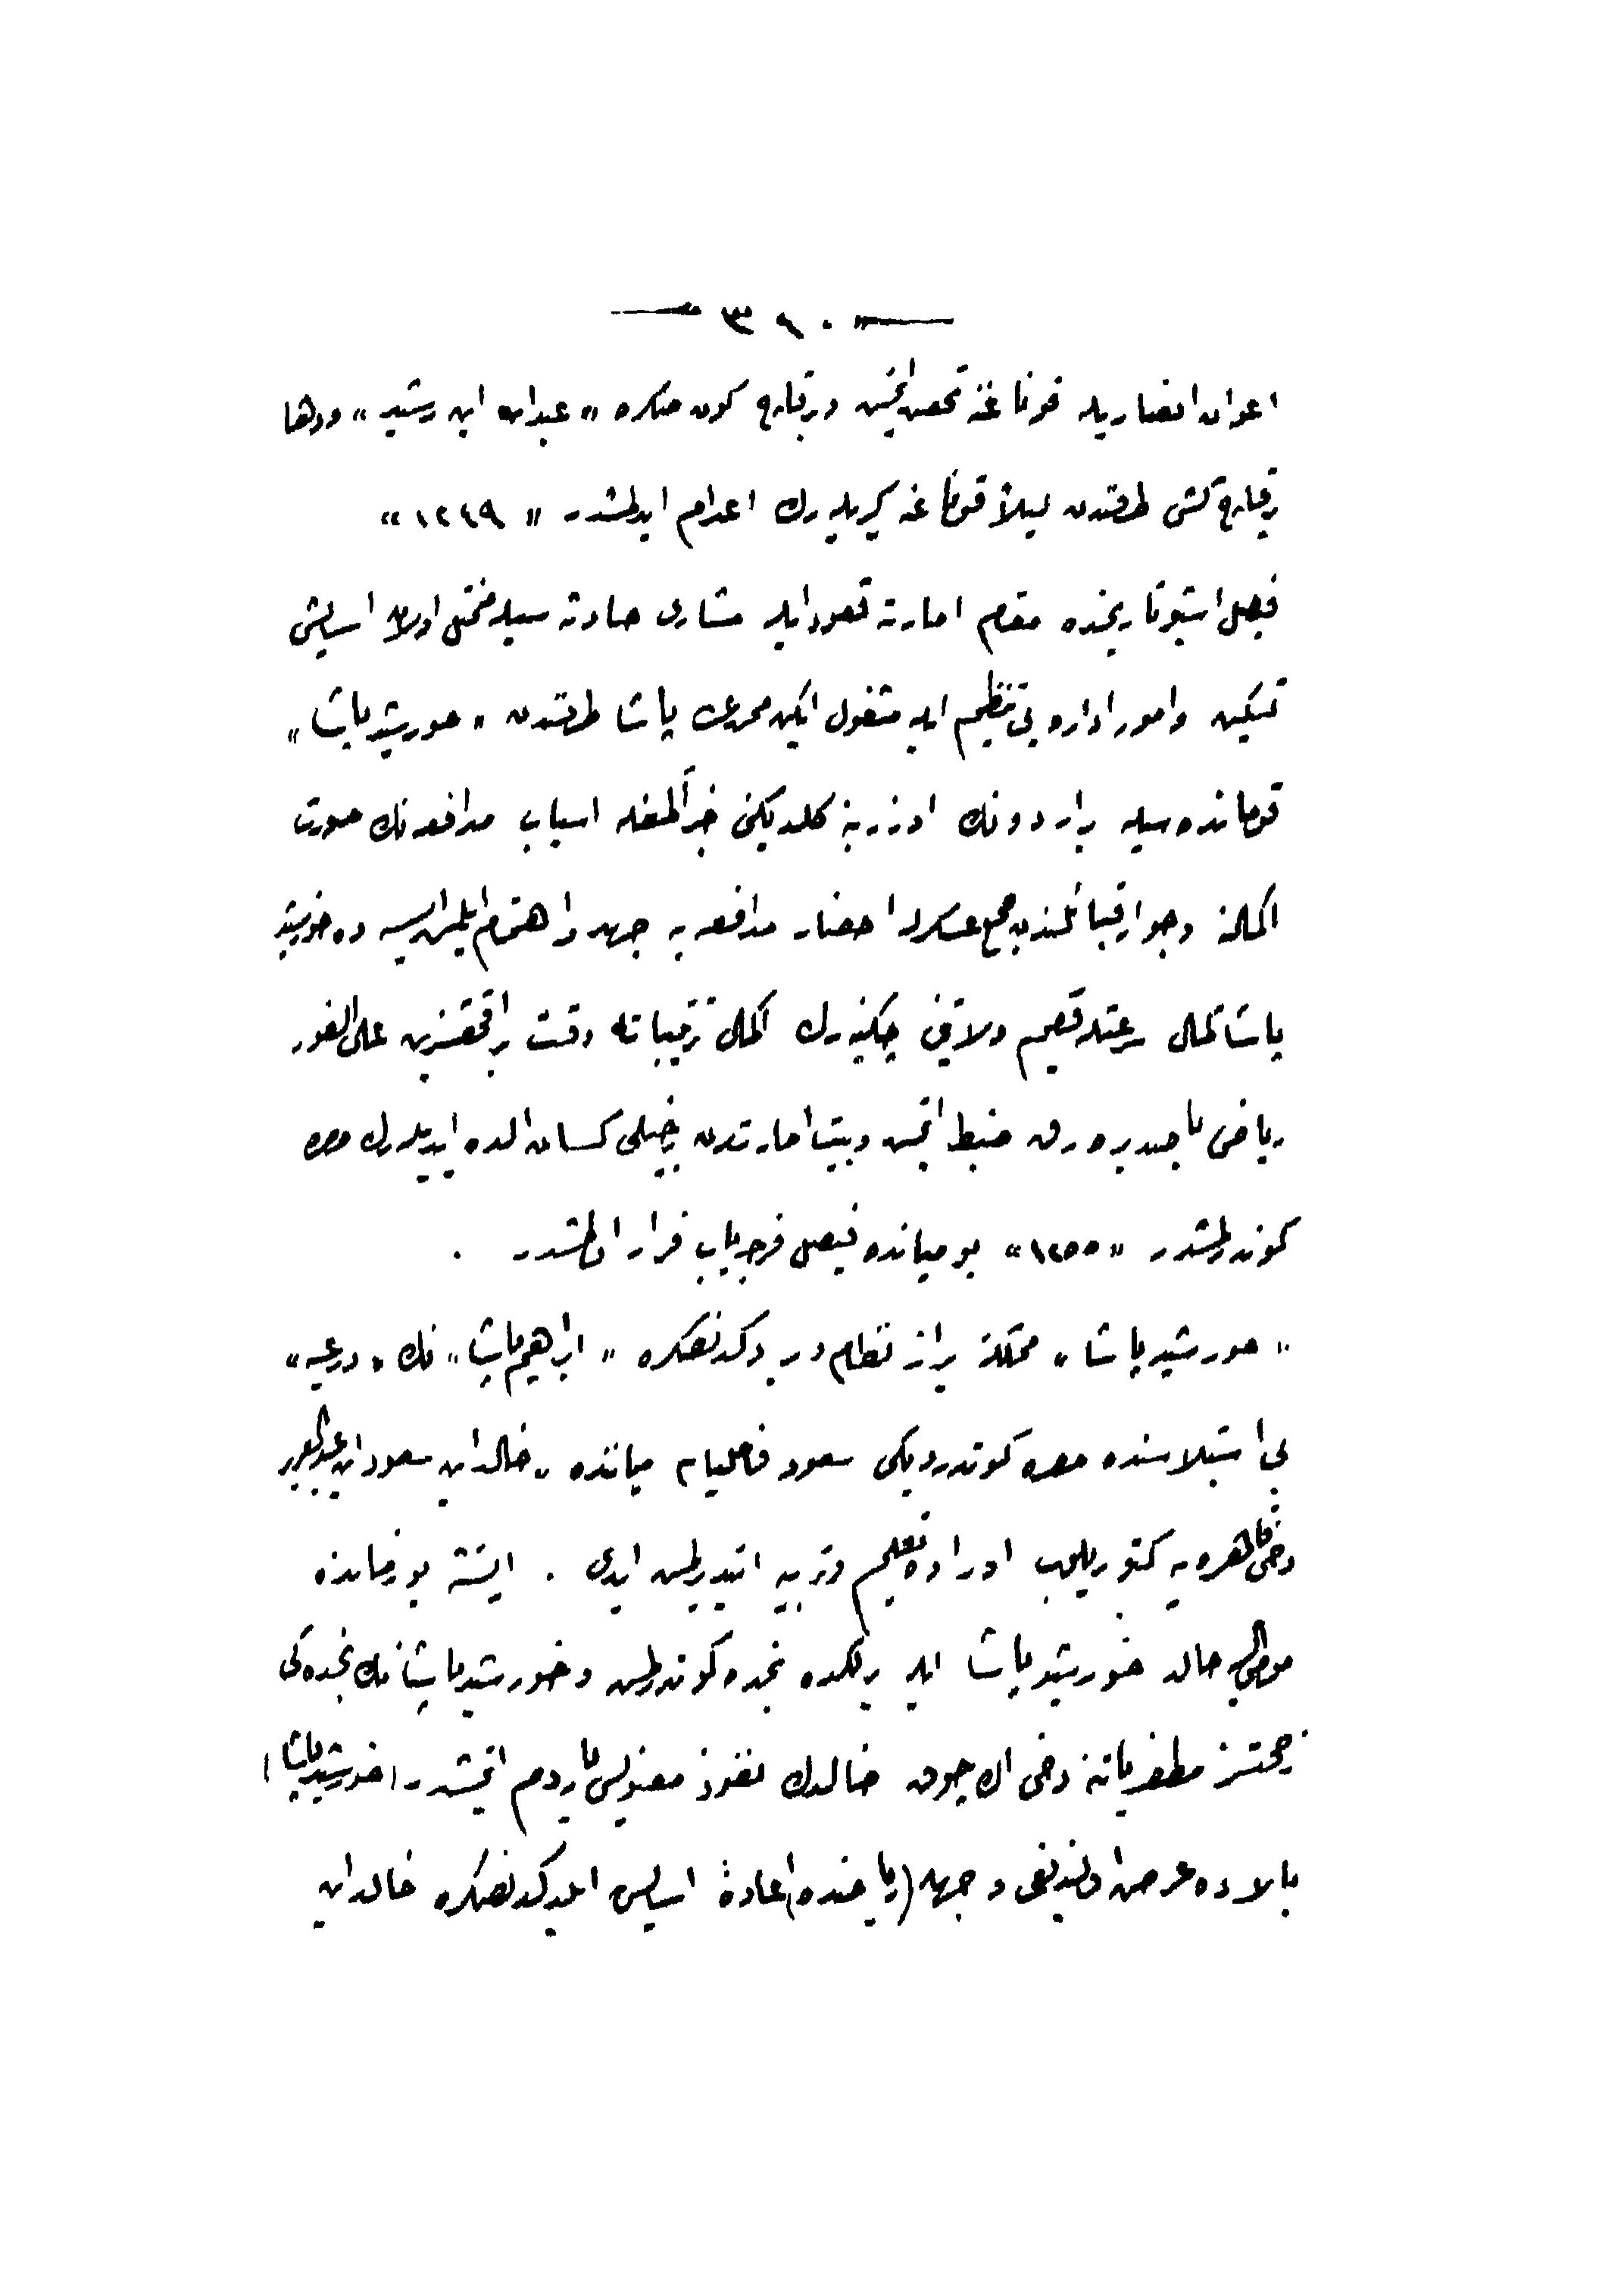 — ٣٩٠ —
اعوان انصاریله قوناغنه تحصن ایتمش وبرقاچ كون صكره « عبدالله ابن رشید » ودها
برقاچ كشی طرفندن لیلاً قوناغنه كیریله رك اعدام ایدلمشدر « ١٢٤٩ »
فیصل اشبو تاریخنده مقام امارته قعود ایله مشاری حادثه سیله مختل اولان اسایش
تسكین وامور اداره یی تنظیم ایله مشغول ایكن محمدعلی پاشا طرفندن « خورشید پاشا »
قومانده سیله بر اردونك اوزرینه كلدیكنی خبر آلمغله اسباب مدافعه نك صورت
اكمالنه وجوار قبائلندن جمع عسكرله احضار مدافعه یه جهد واهتمام ایلمش ایسه ده خورشید
پاشا كمال سرعتله قصیم ولایتنی چیكنیه رك اكمال ترتیباته وقت براقمقسزین علی الفور
ریاضی باصدیره رق ضبط ایتمش وبیت امارتدن برخیلی كسان الده ایدیله رك مصره
كوندرلمشدر « ١٢٥٥ » بو میانده فیصل فرجه یاب فرار اولمشدر .
« خورشید پاشا » مملكته براز نظام ویردكدنصكره « ابراهیم پاشا » نك « درعیه »
یی استیلاسنده مصره كوندردیكی سعود فامیلیاسی میاننده « خالد ابن سعود ابن عبدالعزیز
دخی قاهره یه كتوریلوب اوراده تعلیم وتربیه ایتدیرلمش ایدی . ایشته بو زمانده
مومی الیه خالد خورشید پاشا ایله برلكده نجده كوندرلمش وخورشید پاشانك نجده كی
زحمتسز مظفریاتنه دخی الك چوق خالدك نفوذ معنویسی یاردم ایتمشدر (خورشید پاشا)
بالاده عرض اولندیغی وجهله (ریاضده) اعادهٔ اسایش ایلدكدنصكره خالد ابن